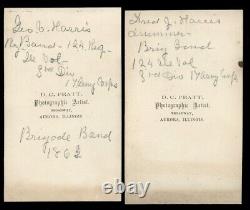 Geo C. Harris
Brig Band - 124 Reg
Ill Vol -
3rd Div
17 Army Corps
D. C. PRATT,
Photographic Artist,
BROADWAY,
AURORA, ILLINOIS.
Brigade Band
1863
Fred J. Harris
drummer -
Brig Band
124 Ill Vol
3rd Div 17 Army Corps
D. C. PRATT,
Photographic Artist,
BROADWAY,
AURORA, ILLINOIS.